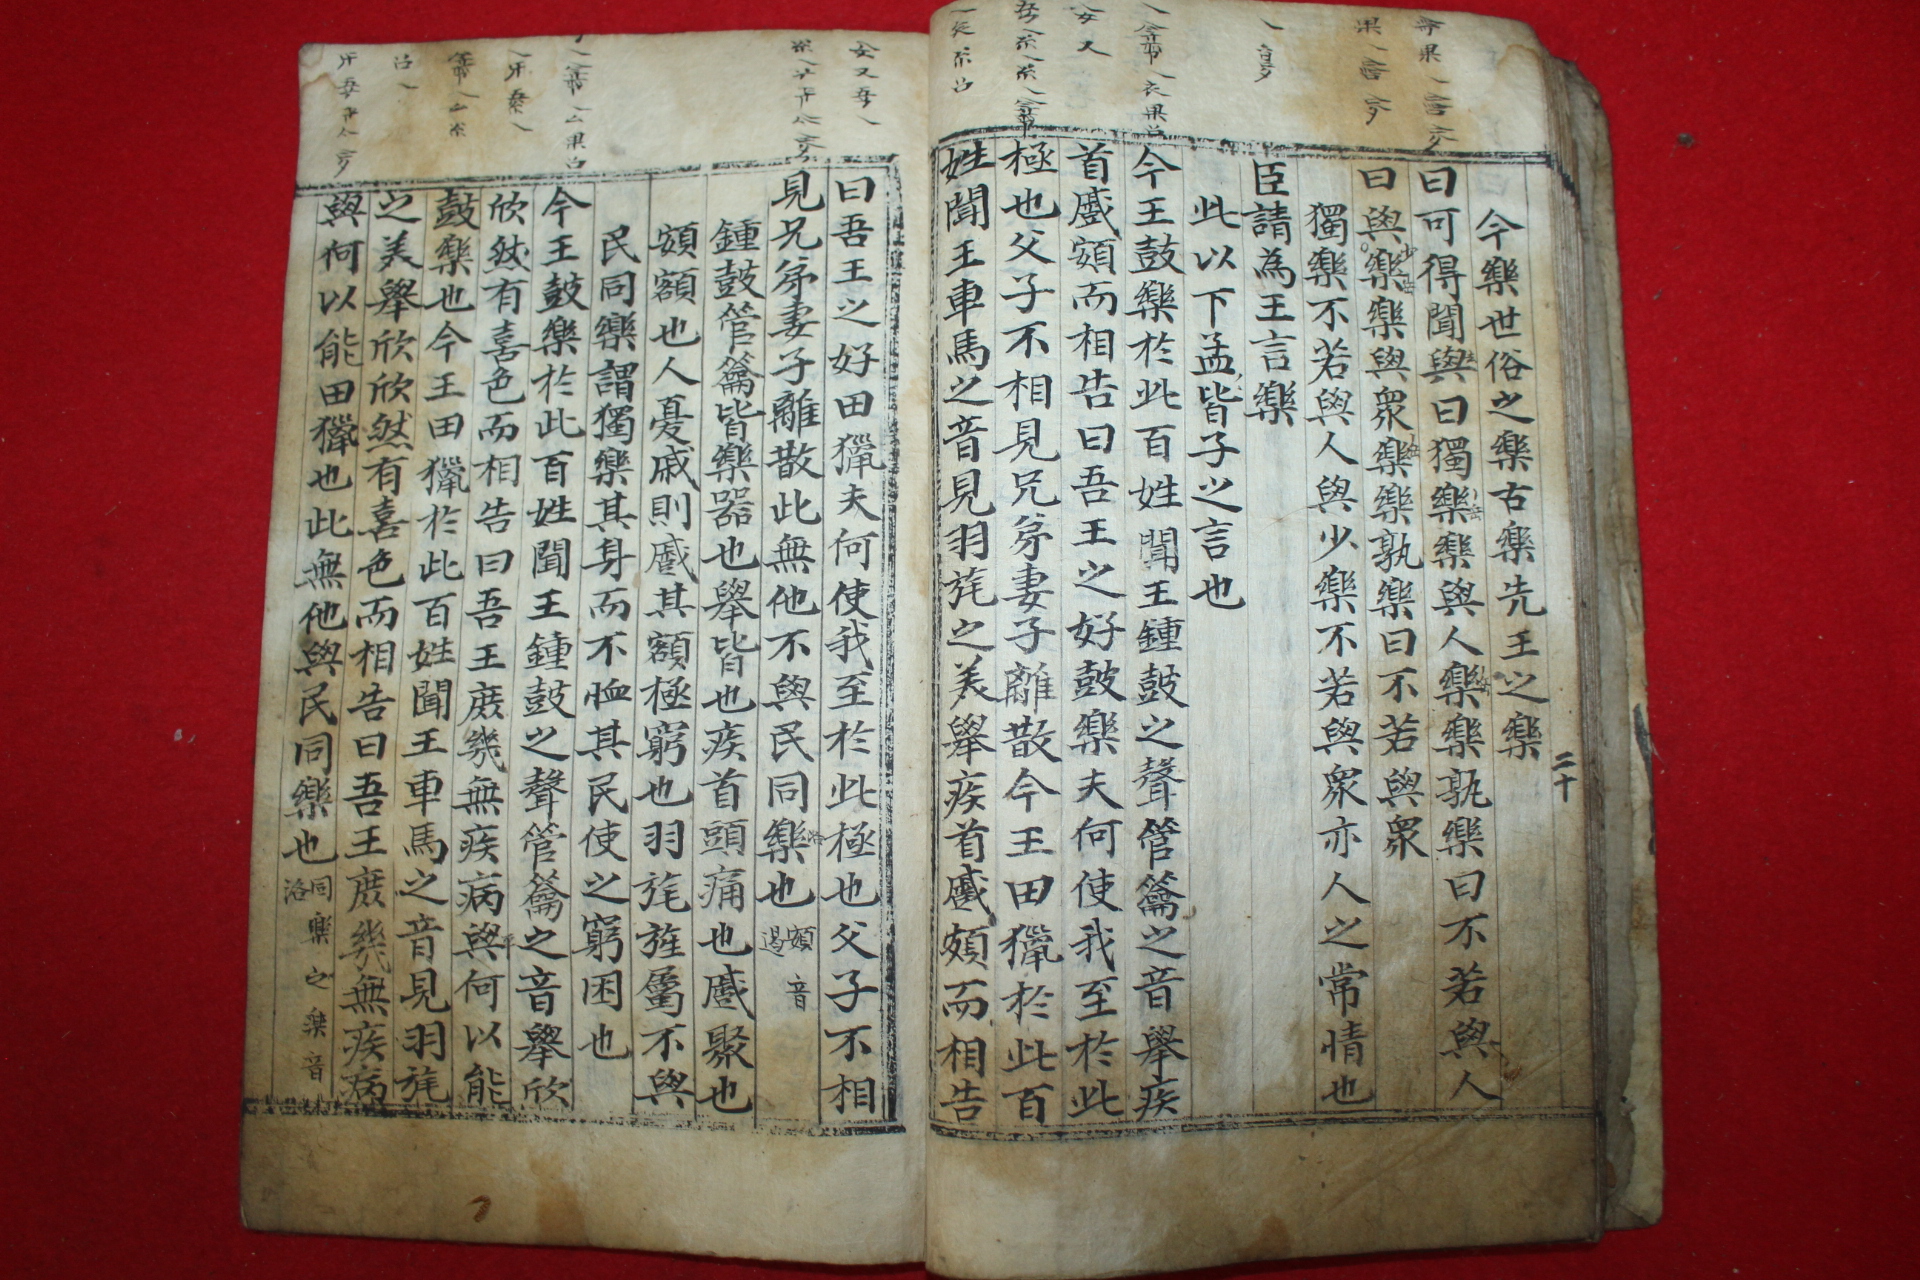 今樂世俗之樂古樂先王之樂
曰可得聞與曰獨樂樂與人樂樂孰樂曰不若與人
曰與少樂樂與衆樂樂孰樂曰不若與衆
獨樂不若與人與少樂不若與衆亦人之常情也
臣請為王言樂
此以下孟皆子之言也
今王鼓樂於此百姓聞王鍾鼓之聲管籥之音舉疾
首蹙頞而相告曰吾王之好鼓樂夫何使我至於此
極也父子不相見兄弟妻子離散今王田獵於此百
姓聞王車馬之音見羽旄之美舉疾首蹙頞而相告
曰吾王之好田獵夫何使我至於此極也父子不相
見兄弟妻子離散此無他不與民同樂也 頞音遏
鍾鼓管籥皆樂器也舉皆也疾首頭痛也蹙聚也
頞額也人憂戚則蹙其額極窮也羽旄旌屬不與
民同樂謂獨樂其身而不恤其民使之窮困也
今王鼓樂於此百姓聞王鍾鼓之聲管籥之音舉欣
欣然有喜色而相告曰吾王庶幾無疾病與何以能
鼓樂也今王田獵於此百姓聞王車馬之音見羽旄
之美舉欣欣然有喜色而相告曰吾王庶幾無疾病
與何以能田獵也此無他與民同樂也 同樂之樂音洛
二十